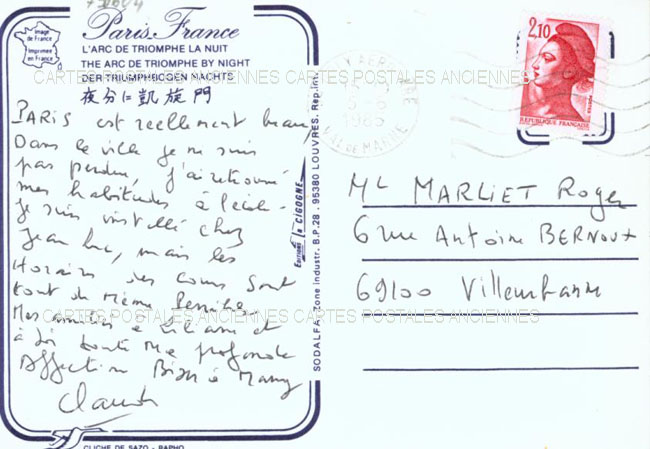 Image
de France
Imprimée
en France
Paris, France
L'ARC DE TRIOMPHE LA NUIT
THE ARC DE TRIOMPHE BY NIGHT
DER TRIUMPHBOGEN NACHTS
夜分に凱旋門
CARTES POSTALES ANCIENNES CARTES POSTALES ANCIENNES CARTES POSTALES ANCIENNES
PARIS est reellement beau,
Dans la ville je ne suis
pas perdu, j'ai retrouvé
mes habitudes à l'école.
Je suis installé chez
Jean Luc, mais les
Horaires des cours sont
tout de même
Mes amitiés a Liliane et
à toi toute ma profonde
affection Bises à Mamy
Claude
CLICHE DE SAZO - RAPHO
Editions la CIGOGNE
SODALFA, Zone Industr. B.P. 28 . 95380 LOUVRES. Rep. Int.
2,10
REPUBLIQUE FRANÇAISE
1985
VAL DE MARNE
MARLIET Roger
6 rue Antoine BERNOUX
69100 Villeurbanne
CARTES POSTALES ANCIENNES CARTES POSTALES ANCIENNES